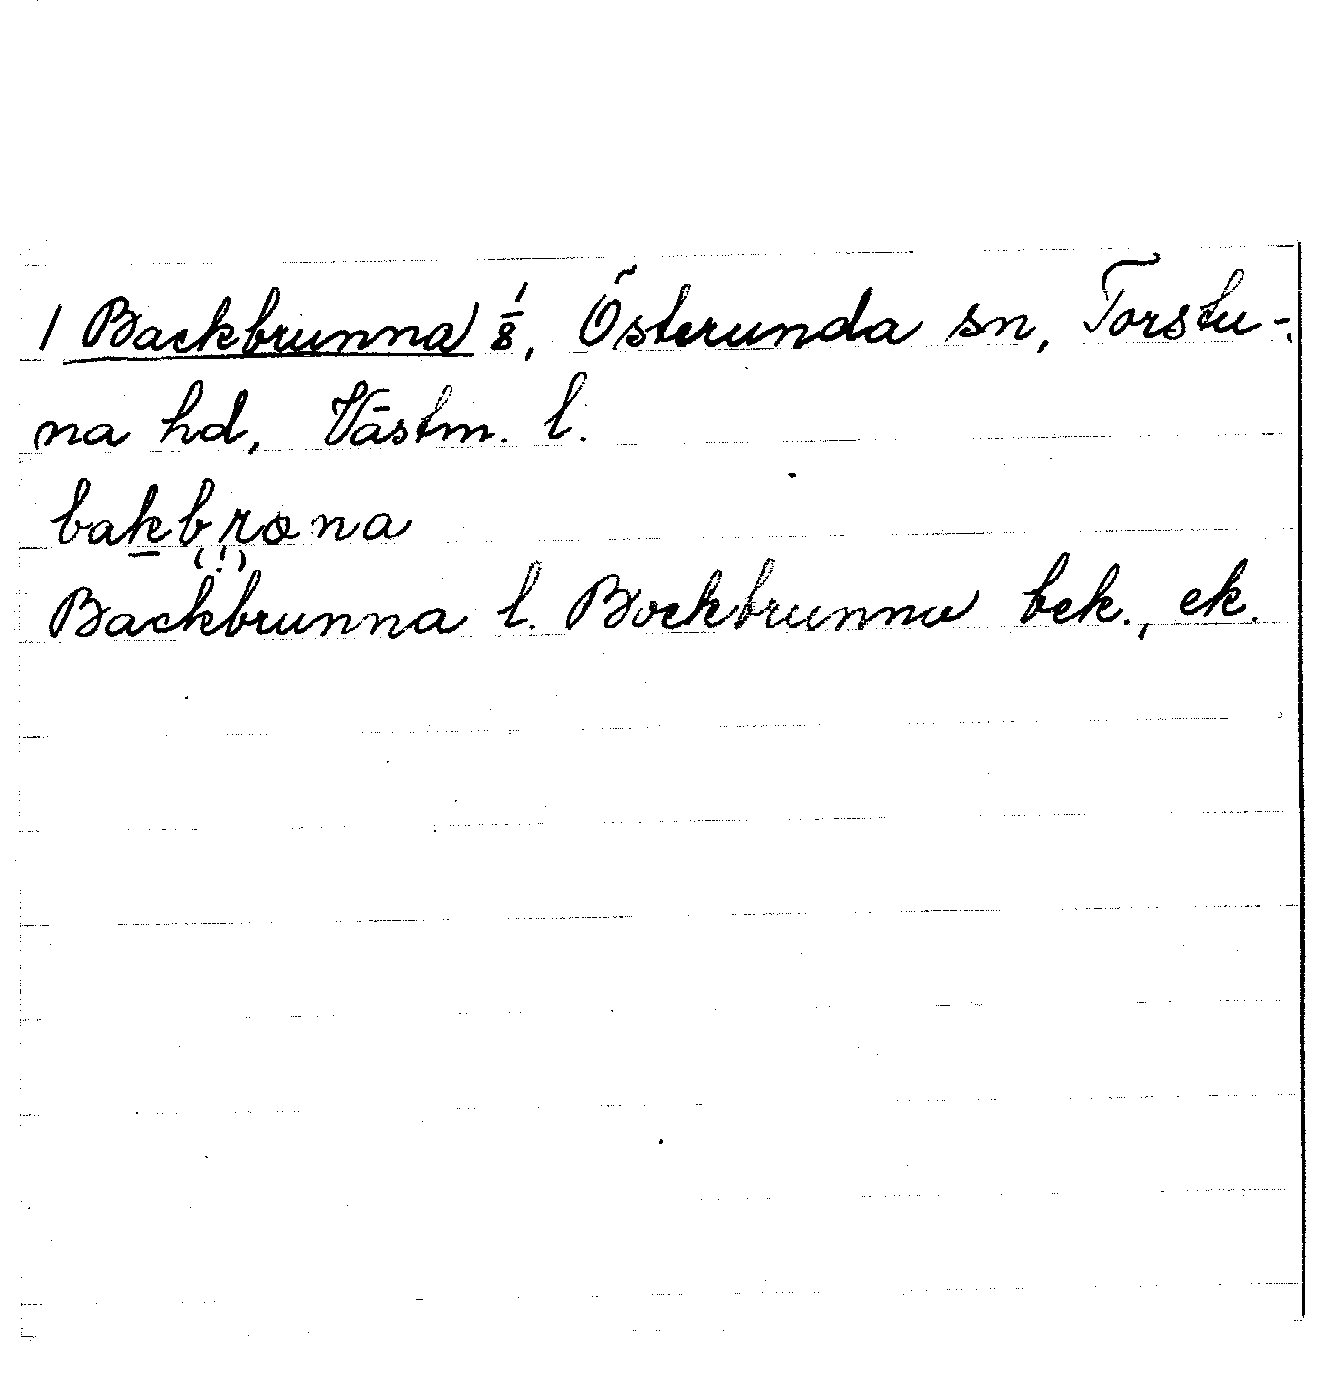 1 Backbrunna 1/8, Österunda sn, Torstu-
na hd, Västm. l.
bakbrona
(!)
Backbrunna l. Bockbrunna bek., ek.